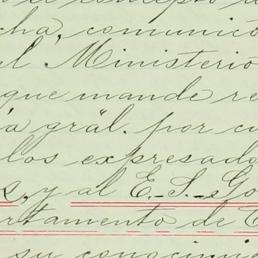 cha, comunicó
al Ministerio
que mande re
ia gräl. por cu
los expresado
s, y al E. S. Go
rtamento de
su conocimie